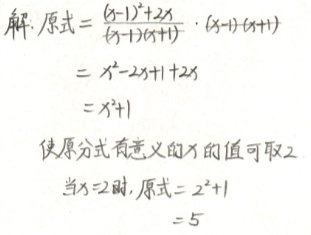 解:原式= \frac{(x-1)^2+2x}{(x-1)(x+1)} · (x-1)(x+1)
= x²-2x+1+2x
= x²+1
使原分式有意义的x的值可取2
当x=2时,原式= 2²+1
=5